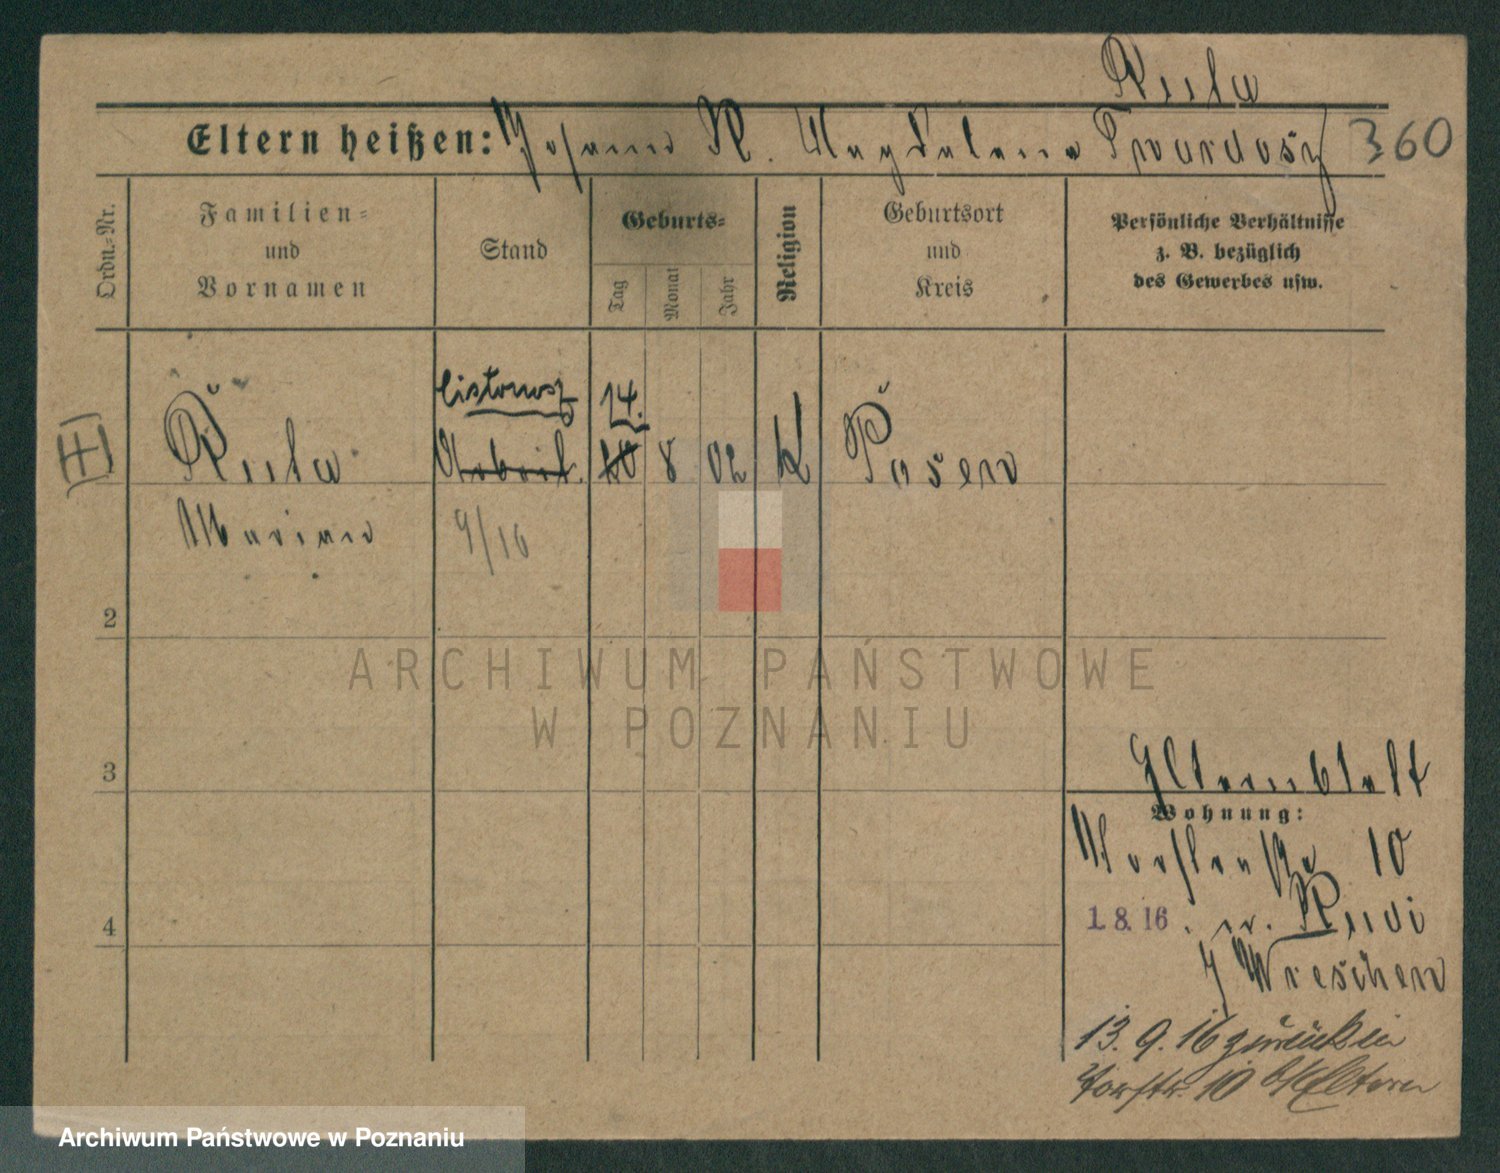 Rula
Eltern heißen: Johann R. Magdalena Twardosz 360
Ordn.-Nr.
Familien-
und
Vornamen
Stand
Geburts-
Tag
Monat
Jahr
Religion
Geburtsort
und
Kreis
Persönliche Verhältnisse
z. B. bezüglich
des Gewerbes usw.
listonosz 14.
Rula Arbeit. 10 8 02 K Posen
Marian 9/16
2
3
4
ARCHIWUM PAŃSTWOWE
W POZNANIU
Elternblatt
Wohnung:
10
1.8.16. n.
Wreschen
13. 9. 16 zurück in
Torstr. 10 b/Eltern
Archiwum Państwowe w Poznaniu